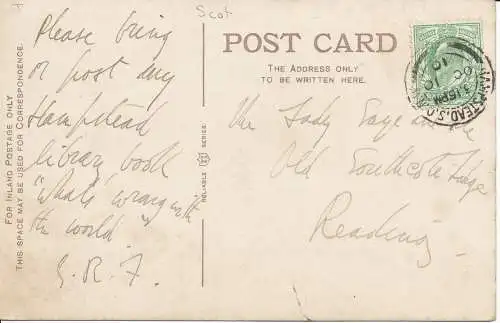 Scot
POST CARD
THE ADDRESS ONLY
TO BE WRITTEN HERE.
FOR INLAND POSTAGE ONLY
THIS SPACE MAY BE USED FOR CORRESPONDENCE.
RELIABLE SERIES.
Please bring
or post my
Hampstead
library book
"What's wrong with
the world"
HAMPSTEAD.S.O.
3.15PM
OC
10
The Lady
Old Southcote Lodge
Reading.